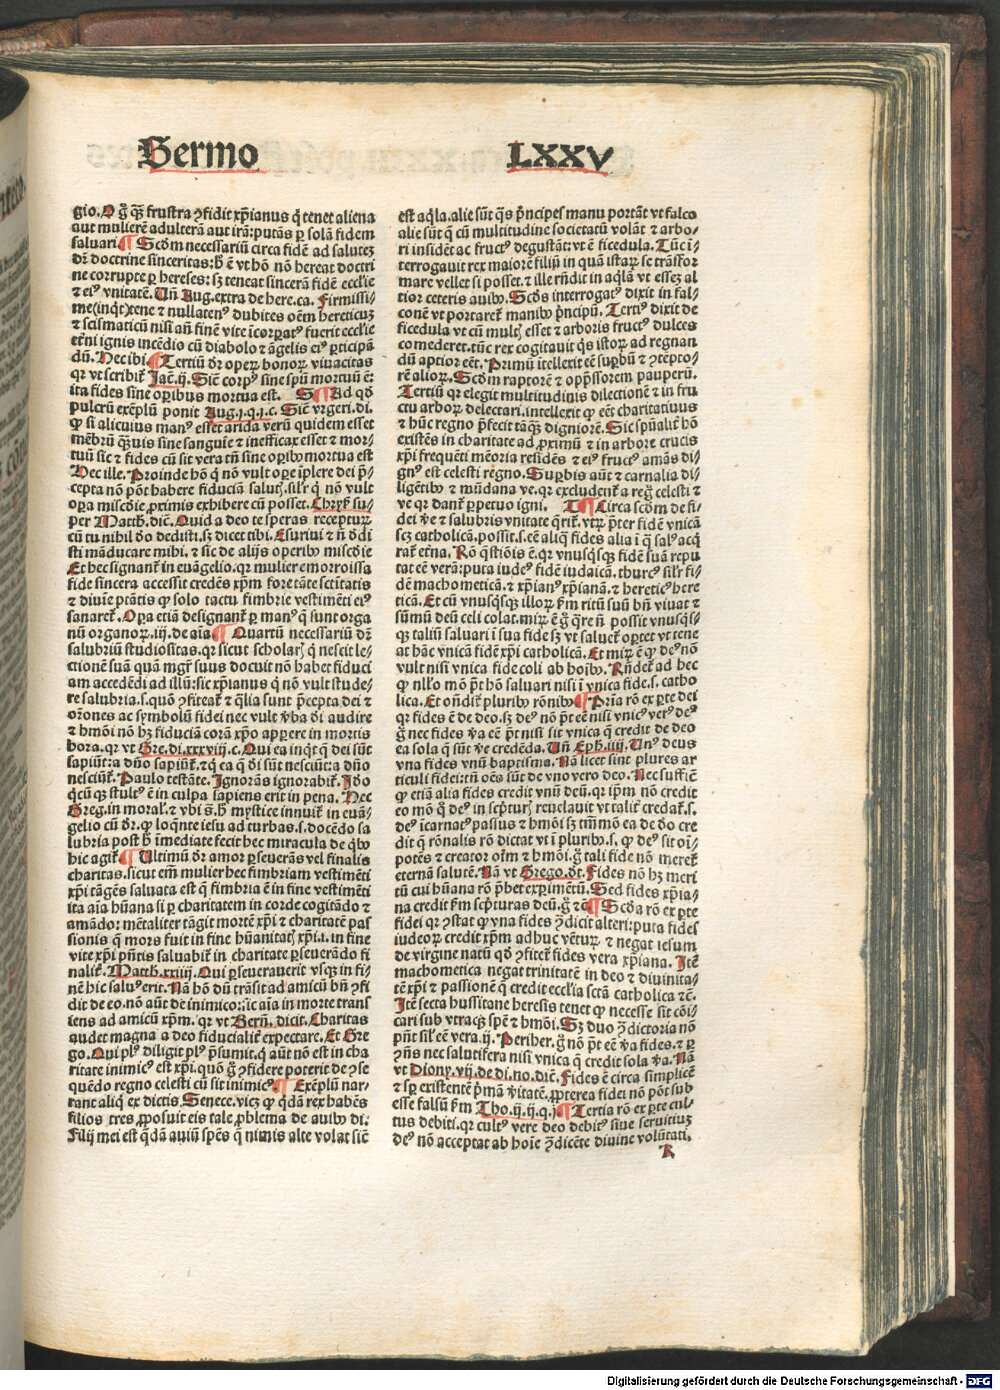 Sermo LXXV
gio. O g̃ q̃ꝫ frustra ꝯfidit xp̃ianus q̇ tenet aliena
aut mulierẽ adulterã aut irã: putãs ꝑ solã fidem
saluari ¶ Scḋm necessariũ circa fidẽ ad saluteꝫ
dr̃ doctrine sinceritas: h̃ ẽ vt hõ nõ hereat doctri
ne corrupte ꝑ hereses: sꝫ teneat sincerã fidẽ eccl̃ie
⁊ eiꝰ vnitatẽ. Vñ Aug. extra de here. ca. Firmissi⸗
me (inq̇t) tene ⁊ nullatenꝰ dubites oẽm hereticuꝫ
⁊ scismaticũ nisi añ finẽ vite ĩcorꝑatꝰ fuerit eccl̃ie
et̃ni ignis incẽdio cũ diabolo ⁊ ãgelis eiꝰ ꝑticipã
dũ. Hec ibi. ¶ Tertiũ dr̃ operꝫ bonoꝝ viuacitas
qr vt scribit᷑ Jac. ij. Sic̃ corpꝰ sine spũ mortuũ ẽ:
ita fides sine oꝑibus mortua est. ¶ Ad qḋ
pulcrũ exẽplũ ponit Aug. j. q. j. c. Sic̃ vrgeri. di.
ꝙ si alicuius manꝰ esset arida verũ quidem esset
mẽbrũ q̃uis sine sanguĩe ⁊ inefficax esset ⁊ mor⸗
tuũ sic ⁊ fides cũ sit vera tñ sine oꝑibꝰ mortua est
Hec ille. Proinde hõ q̇ nõ vult oꝑe ĩplere dei p̃⸗
cepta nõ põt habere fiduciã salutꝫ. sil̃r q̇ nõ vult
oꝑa miscḋie ꝓximis exhibere cũ posset. Chrys̃. su⸗
per Matth. dic̃. Quid a deo te speras recepturꝫ
cũ tu nihil ḋo dedisti. sꝫ dicet tibi. Esuriui ⁊ ñ dedi
sti mãducare mihi. ⁊ sic de alijs operibꝰ miscḋie
Et hec signant᷑ in euãgelio. qr mulier emorroissa
fide sincera accessit credẽs xp̃m fore tãte sc̃titatis
⁊ diuĩe ptãtis ꝙ solo tactu fimbrie vestimẽti eiꝰ
sanaret᷑. Oꝑa etiã designant᷑ ꝑ manꝰ q̃ sunt orga
nũ organoꝝ. iij. de aĩa ¶ Quartũ necessariũ dr̃
salubriũ studiositas. qr sicut scholarꝫ q̇ nescit le⸗
ctionẽ suã quã mgr̃ suus docuit nõ habet fiduci
am accedẽdi ad illũ: sic xp̃ianus q̇ nõ vult stude⸗
re salubria. s. quõ ꝯfiteat᷑ ⁊ q̃lia sunt p̃cepta dei ⁊
or̃ones ac symbolũ fidei nec vult v̇ba di audire
⁊ hm̃õi nõ hꝫ fiduciã corã xp̃o apꝑere in mortis
hora. qr vt Gre. di. xxxviij. c. Qui ea inq̇t q̃ dei sũt
sapiũt: a dño sapiũt᷑. ⁊ q̇ ea q̃ di sũt nesciũt: a dño
nesciũt᷑. Paulo testãte. Ignorãs ignorabit᷑. Iḋo
q̇cũqꝫ stultꝰ ẽ in culpa sapiens erit in pena. Hec
Greg. in moral᷑. ⁊ vbi s̃. h̃ mystice innuit᷑ in euã⸗
gelio cũ dr̃. ꝙ loq̃nte iesu ad turbas. s. docẽdo sa
lubria post h̃ ĩmediate fecit hec miracula de q̇bꝰ
hic agit᷑ ¶ Vltimũ dr̃ amor ꝑseuerãs vel finalis
charitas. sicut em̃ mulier hec fimbriam vestimẽti
xp̃i tãgẽs saluata est q̃ fimbria ẽ in fine vestimẽti
ita aĩa hũana si ꝑ charitatem in corde cogitãdo ⁊
amãdo: mẽtaliter tãgit mortẽ xp̃i ⁊ charitatẽ pas
sionis q̃ mors fuit in fine hũanitatꝫ xp̃i. i. in fine
vite xp̃i p̃ntis saluabit᷑ in charitate ꝑseuerãdo fi
nalit᷑. Matth. xxiiij. Qui ꝑseuerauerit vsqꝫ in fi⸗
nẽ hic saluꝰ erit. Nã hõ dũ trãsit ad amicũ bñ ꝯfi
dit de eo. nõ aũt de inimico: sic aĩa in morte trans
iens ad amicũ xp̃m. qr vt Berñ. dicit. Charitas
audet magna a deo fiducialit᷑ expectare. Et Gre
go. Qui plꝰ diligit plꝰ p̃sumit. q̇ aũt nõ est in cha
ritate inimicꝰ est xp̃i. quõ g̃ ꝯfidere poterit de ꝯse
quẽdo regno celesti cũ sit inimicꝰ ¶ Exẽplũ nar⸗
rant aliq̇ ex dictis. Senece. vicꝫ ꝙ q̇dã rex habẽs
filios tres ꝓposuit eis tale ꝓblema de auibꝰ di.
Filij mei est q̃dã auiũ spẽs q̃ nimis alte volat sic̃
est aq̇la. alie sũt q̃s p̃ncipes manu portãt vt falco
alie sũt q̃ cũ multitudine societatũ volãt ⁊ arbo⸗
ri insidẽt ac fructꝰ degustãt: vt ẽ ficedula. Tũc i⸗
terrogauit rex maiorẽ filiũ in quã istaꝝ se trãsfor
mare vellet si posset. ⁊ ille rñdit in aq̇lã vt esseꝫ al
tior ceteris auibꝰ. Scḋs interrogatꝰ dixit in fal⸗
conẽ vt portaret᷑ manibꝰ p̃ncipũ. Tertiꝰ dixit de
ficedula vt cũ multꝫ esset ⁊ arboris fructꝰ dulces
comederet. tũc rex cogitauit q̇s istoꝝ ad regnan
dũ aptior eẽt. Primũ ĩtellexit eẽ suꝑbũ ⁊ ꝯtẽpto⸗
rẽ alioꝝ. Scḋm raptorẽ ⁊ opp̃ssorem pauperũ.
Tertiũ qr elegit multitudinis dilectionẽ ⁊ in fru
ctu arboꝝ delectari. intellexit ꝙ eẽt charitatiuus
⁊ hũc regno p̃fecit tãq̃ꝫ digniorẽ. Sic sp̃ualit᷑ hõ
existẽs in charitate ad ꝓximũ ⁊ in arbore crucis
xp̃i frequẽti mẽoria residẽs ⁊ eiꝰ fructꝰ amãs di⸗
gnꝰ est celesti regno. Suꝑbis aũt ⁊ carnalia di⸗
ligẽtibꝰ ⁊ mũdana ve. qr excludent᷑ a reg̃ celesti ⁊
ve qr dant᷑ ꝑpetuo igni. ¶ Circa scḋm de fi⸗
dei v̇e ⁊ salubris vnitate q̃rit᷑. vtꝝ p̃ter fidẽ vnicã
scꝫ catholicã. possit. s. eẽ aliq̃ fides alia ĩ q̃ salꝰ acq̇
rat᷑ et̃na. Rõ q̃stiõis ẽ. qr vnusq̇sqꝫ fidẽ suã repu
tat eẽ verã: puta iudeꝰ fidẽ iudaicã. thurcꝰ sil̃r fi⸗
dẽ machometicã. ⁊ xp̃ianꝰ xp̃ianã. ⁊ hereticꝰ here
ticã. Et cũ vnusq̇sqꝫ illoꝝ ẜm ritũ suũ bñ viuat ⁊
sũmũ deũ celi colat. mirꝫ ẽ g̃ q̃re ñ possit vnusq̇s
qꝫ taliũ saluari ĩ sua fide sꝫ vt saluet᷑ oꝑtet vt tene
at hãc vnicã fidẽ xp̃i catholicã. Et mirꝫ ẽ ꝙ deꝰ nõ
vult nisi vnica fide coli ab hoĩbꝰ. Rñdet᷑ ad hec
ꝙ nllo mõ p̃t hõ saluari nisi ĩ vnica fide. s. catho
lica. Et oñdit᷑ pluribꝰ rõnibꝰ ¶ Pria rõ ex ꝑte dei
qr fides ẽ de deo. sꝫ deꝰ nõ p̃t eẽ nisi vnicꝰ verꝰ deꝰ
g̃ nec fides v̇a eẽ p̃t nisi sit vnica q̃ credit de deo
ea sola q̃ sũt v̇e credẽda. Vñ Eph. iiij. Vnꝰ deus
vna fides vnũ baptisma. Nã licet sint plures ar
ticuli fidei: tñ oẽs sũt de vno vero deo. Nec suffic̃
ꝙ etiã alia fides credit vnũ deũ. qr ip̃m nõ credit
eo mõ q̃ deꝰ in scp̃turꝫ reuelauit vt talit᷑ credat᷑. s.
deꝰ ĩcarnatꝰ passus ⁊ hm̃õi sꝫ tm̃mõ ea de ḋo cre
dit q̃ rõnalis rõ dictat vt ĩ pluribꝰ. s. ꝙ deꝰ sit oĩ⸗
potẽs ⁊ creator oĩm ⁊ hm̃õi. g̃ tali fide nõ meret᷑
eternã salutẽ. Nã vt Grego. dt. Fides nõ hꝫ meri
tũ cui hũana rõ p̃bet exꝑimẽtũ. Sed fides xp̃ia⸗
na credit ẜm scp̃turas deũ. g̃ ⁊c̃ ¶ Scḋa rõ ex ꝑte
fidei qr ꝯstat ꝙ vna fides ꝯ̃dicit alteri: puta fides
iudeoꝝ credit xp̃m adhuc vẽturꝫ ⁊ negat iesum
de virgine natũ qḋ ꝯfitet᷑ fides vera xp̃iana. Itẽ
machometica negat trinitatẽ in deo ⁊ diuinita⸗
tẽ xp̃i ⁊ passionẽ q̃ credit eccl̃ia sct̃ã catholica ⁊c̃.
Itẽ secta hussitane heresis tenet ꝙ necesse sit cõi⸗
cari sub vtraqꝫ spẽ ⁊ hm̃õi. Sꝫ duo ꝯ̃dictoria nõ
pñt sil᷑ eẽ vera. ij. Periher. g̃ nõ p̃t eẽ v̇a fides. ⁊ ꝑ
ꝯñs nec salutifera nisi vnica q̃ credit sola v̇a. Nã
vt Diony. vij. de di. no. dic̃. Fides ẽ circa simplicẽ
⁊ sp̃ existentẽ p̃mã v̇itatẽ. ꝓpterea fidei nõ põt sub
esse falsũ ẜm Tho. ij. ij. q. j ¶ Tertia rõ ex ꝑte cul⸗
tus debiti. qr cultꝰ vere deo debitꝰ siue seruitiuꝫ
deꝰ nõ acceptat ab hoĩe ꝯ̃dicẽte diuine volũtati.
R
Digitalisierung gefördert durch die Deutsche Forschungsgemeinschaft - DFG